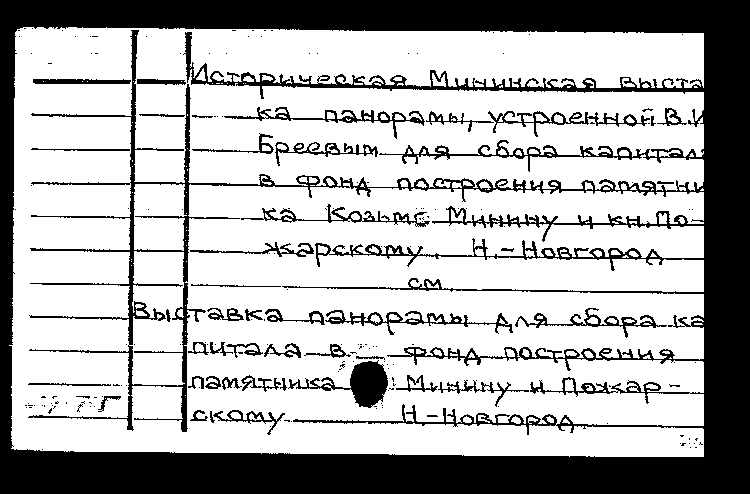 Историческая Мининская выста
ка панорамы, устроенной В.И
Бреевым для сбора капитал
в фонд построения памятни
ка Козьме Минину и кн. По-
жарскому. Н.-Новгород
см.
Выставка панорамы для сбора ка
питала в фонд построения
памятника Минину и Пожар-
скому Н.-Новгород